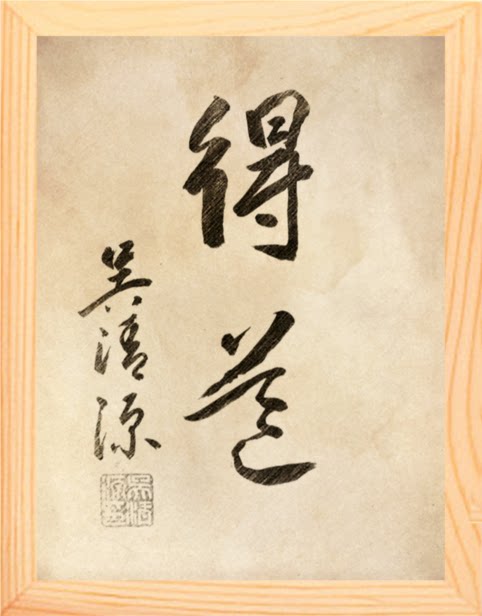 得道
吳清源